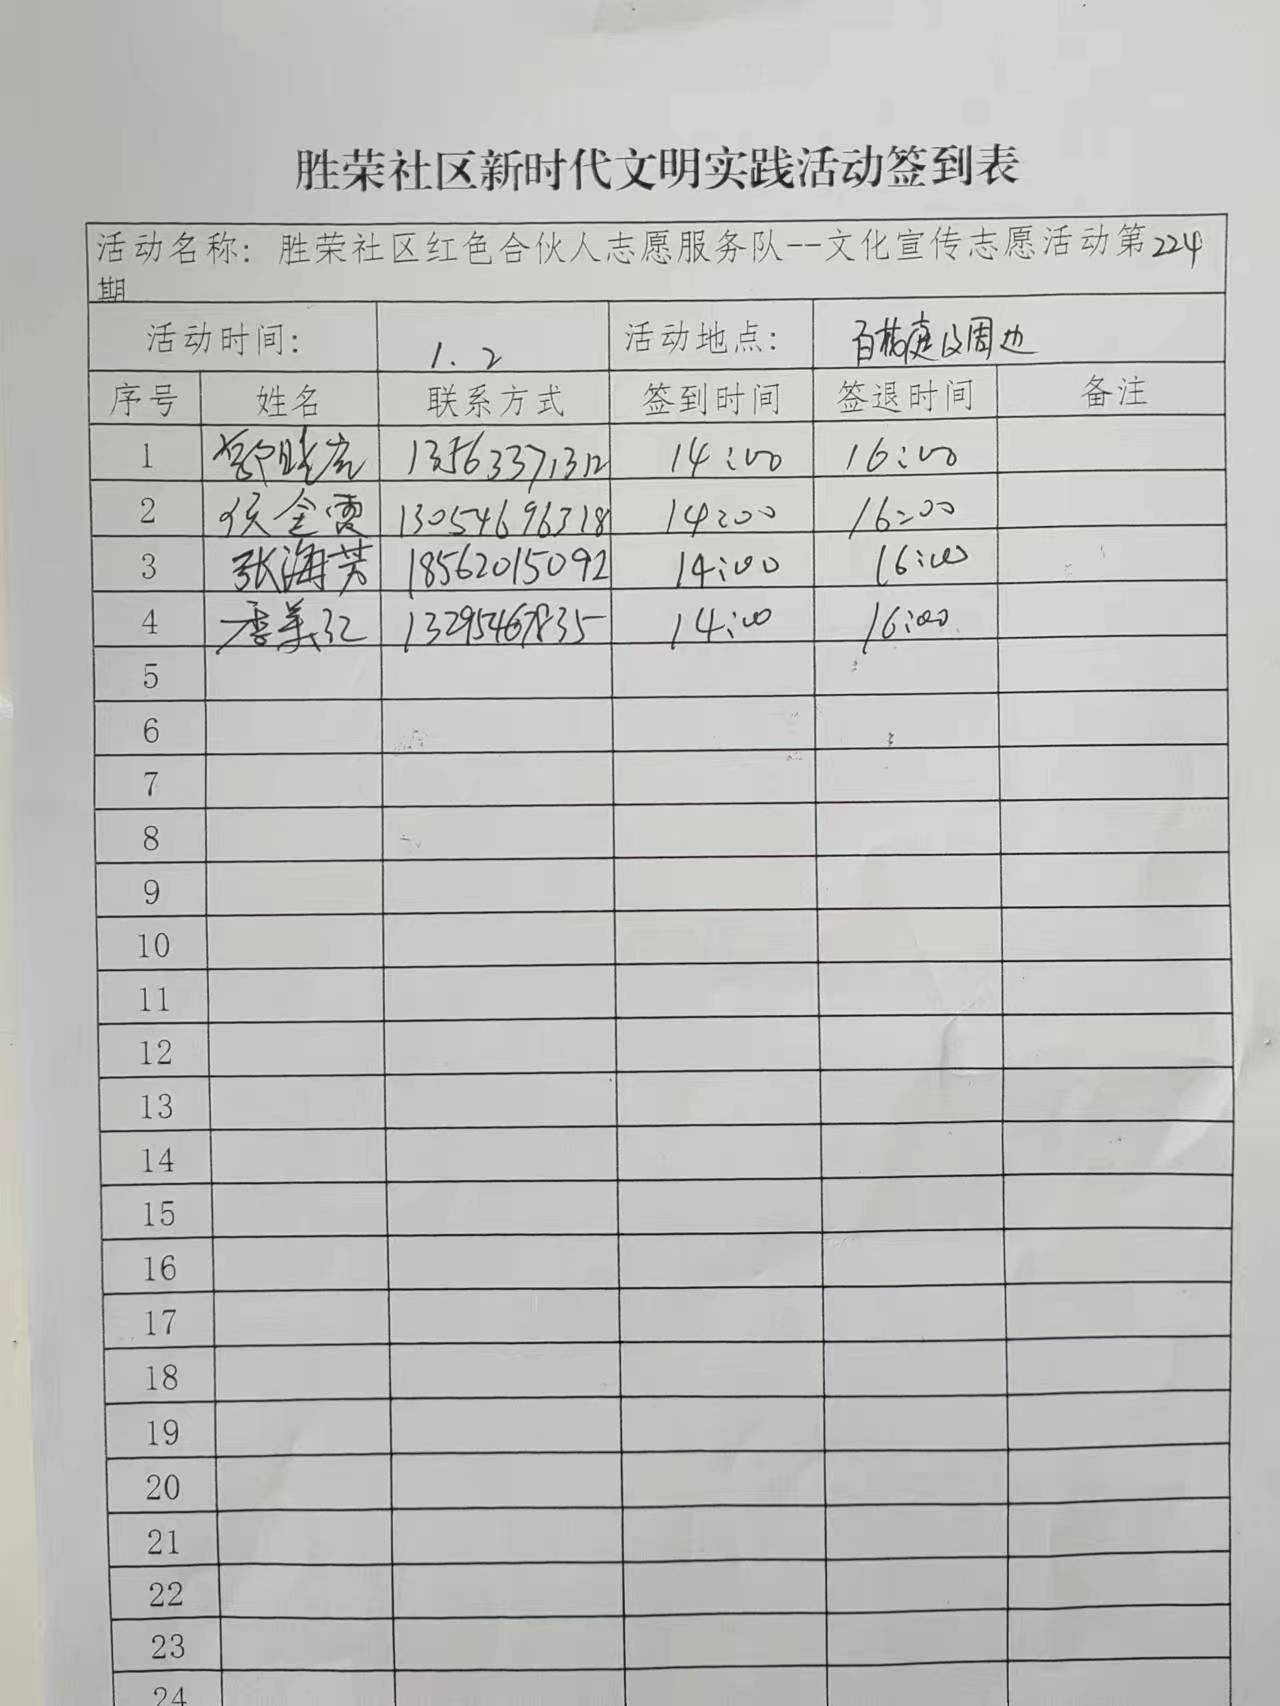 胜荣社区新时代文明实践活动签到表
活动名称：胜荣社区红色合伙人志愿服务队--文化宣传志愿活动第224
期
活动时间： 1.2 活动地点： 百桔庭及周边
序号 姓名 联系方式 签到时间 签退时间 备注
1 13563371312 14:00 16:00
2 侯金霞 13054696318 14:00 16:00
3 张海芳 18562015092 14:00 16:00
4 季美红 13295467835 14:00 16:00
5
6
7
8
9
10
11
12
13
14
15
16
17
18
19
20
21
22
23
24